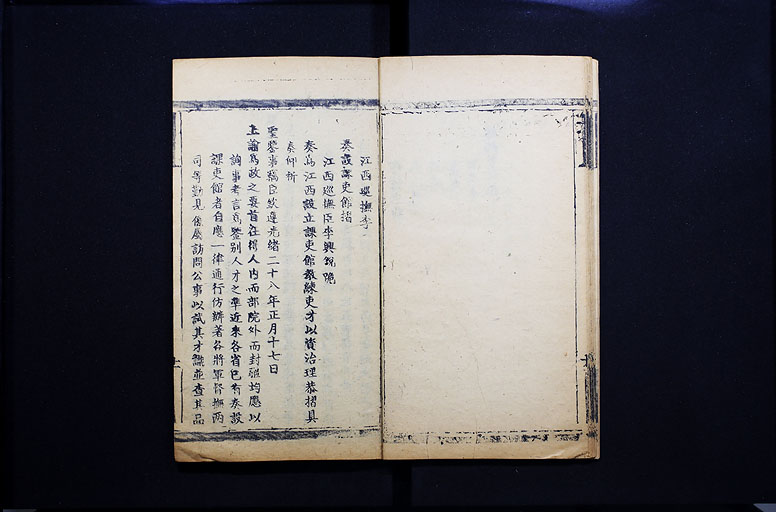 江西巡撫李
奏設課吏館摺
江西巡撫臣李興銳跪
奏爲江西設立課吏館教練吏才以資治理恭摺具
奏仰祈
聖鑒事竊臣欽遵光緒二十八年正月十七日
上諭爲政之要首在得人内而部院外而封疆均應以
詢事考言爲鑒別人才之準近來各省已有奏設
課吏館者自應一律通行仿辦著各將軍督撫兩
司等勤見僚屬訪問公事以試其才識並查其品